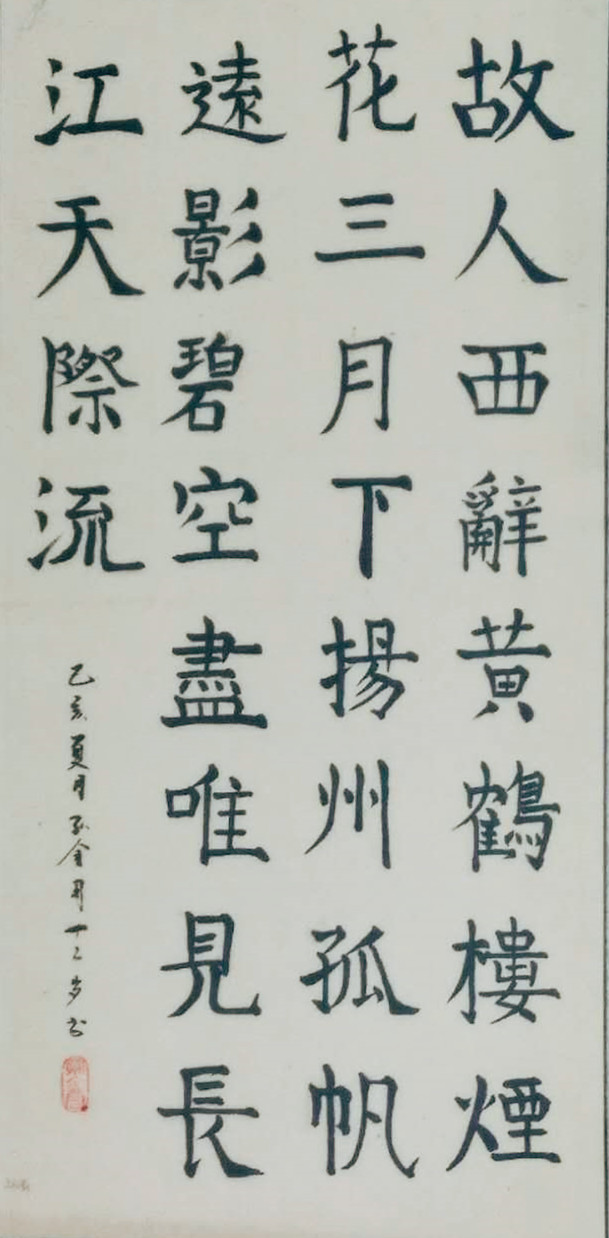 故人西辭黃鶴樓煙
花三月下揚州孤帆
遠影碧空盡唯見長
江天際流
乙亥夏月孫金月十二岁书